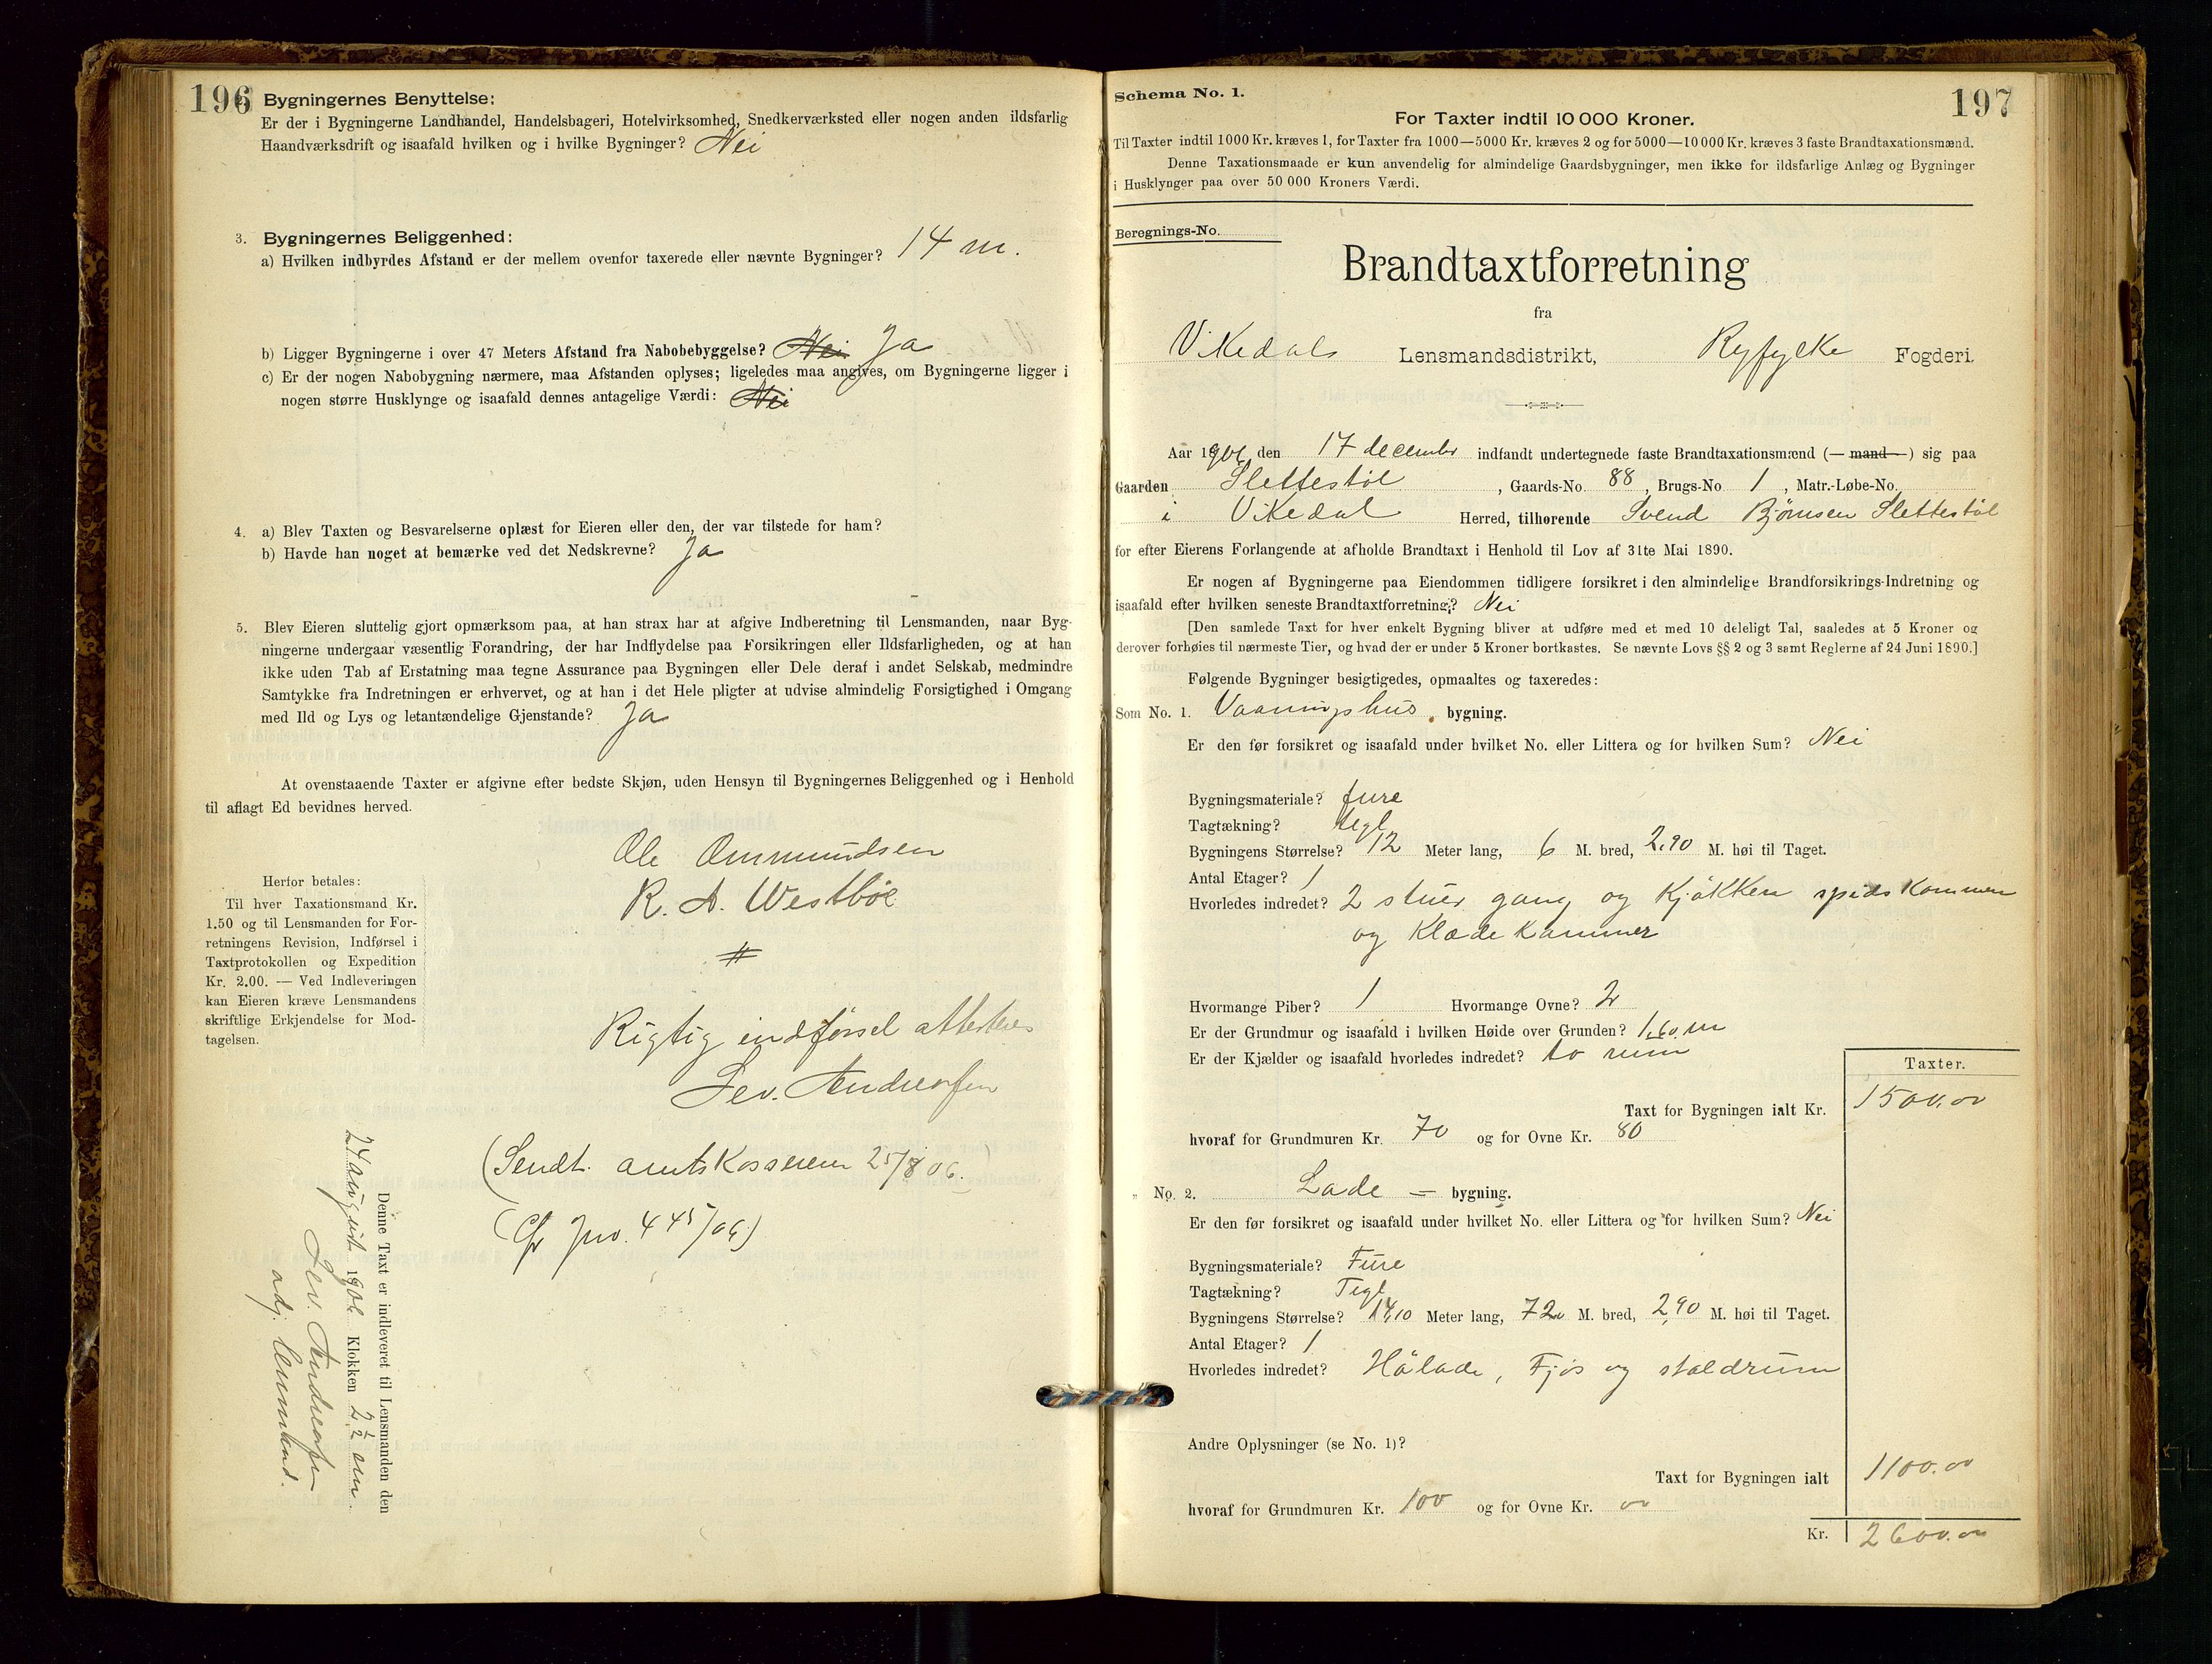 196
Bygningernes Benyttelse:
Er der i Bygningerne Landhandel, Handelsbageri, Hotelvirksomhed, Snedkerværksted eller nogen anden ildsfarlig
Haandværksdrift og isaafald hvilken og i hvilke Bygninger? Nei
3. Bygningernes Beliggenhed:
a) Hvilken indbyrdes Afstand er der mellem ovenfor taxerede eller nævnte Bygninger? 14 m.
b) Ligger Bygningerne i over 47 Meters Afstand fra Nabobebyggelse? Nei Ja
c) Er der nogen Nabobygning nærmere, maa Afstanden oplyses; ligeledes maa angives, om Bygningerne ligger i
nogen større Husklynge og isaafald dennes antagelige Værdi: Nei
4. a) Blev Taxten og Besvarelserne oplæst for Eieren eller den, der var tilstede for ham?
b) Havde han noget at bemærke ved det Nedskrevne? Ja
5. Blev Eieren sluttelig gjort opmærksom paa, at han strax har at afgive Indberetning til Lensmanden, naar Byg-
ningerne undergaar væsentlig Forandring, der har Indflydelse paa Forsikringen eller Ildsfarligheden, og at han
ikke uden Tab af Erstatning maa tegne Assurance paa Bygningen eller Dele deraf i andet Selskab, medmindre
Samtykke fra Indretningen er erhvervet, og at han i det Hele pligter at udvise almindelig Forsigtighed i Omgang
med Ild og Lys og letantændelige Gjenstande? Ja
At ovenstaaende Taxter er afgivne efter bedste Skjøn, uden Hensyn til Bygningernes Beliggenhed og i Henhold
til aflagt Ed bevidnes herved.
Ole Ommundsen
R. A. Westbøe
#
Herfor betales:
Til hver Taxationsmand Kr.
1.50 og til Lensmanden for For-
retningens Revision, Indførsel i
Taxtprotokollen og Expedition
Kr. 2.00. — Ved Indleveringen
kan Eieren kræve Lensmandens
skriftlige Erkjendelse for Mod-
tagelsen.
Rigtig indførsel attesteres
Sev. Andreassen
(Sendt amtskassereren 25/8 06.)
(Cfr Jno. 445/06)
Denne Taxt er indleveret til Lensmanden den
24 august 1906 Klokken 2 1/2 em.
Sev. Andreassen
adj. lensmand.
Schema No. 1.
197
For Taxter indtil 10 000 Kroner.
Til Taxter indtil 1000 Kr. kræves 1, for Taxter fra 1000—5000 Kr. kræves 2 og for 5000—10 000 Kr. kræves 3 faste Brandtaxationsmænd.
Denne Taxationsmaade er kun anvendelig for almindelige Gaardsbygninger, men ikke for ildsfarlige Anlæg og Bygninger
i Husklynger paa over 50 000 Kroners Værdi.
Beregnings-No.
Brandtaxtforretning
fra
Vikedals Lensmandsdistrikt, Ryfylke Fogderi.
Aar 1906 den 17 december indfandt undertegnede faste Brandtaxationsmænd (— mand —) sig paa
Gaarden Slettestøl , Gaards-No. 88 , Brugs-No. 1 , Matr.-Løbe-No.
i Vikedal Herred, tilhørende Svend Bjørnsen Slettestøl
for efter Eierens Forlangende at afholde Brandtaxt i Henhold til Lov af 31te Mai 1890.
Er nogen af Bygningerne paa Eiendommen tidligere forsikret i den almindelige Brandforsikrings-Indretning og
isaafald efter hvilken seneste Brandtaxtforretning? Nei
[Den samlede Taxt for hver enkelt Bygning bliver at udføre med et med 10 deleligt Tal, saaledes at 5 Kroner og
derover forhøies til nærmeste Tier, og hvad der er under 5 Kroner bortkastes. Se nævnte Lovs §§ 2 og 3 samt Reglerne af 24 Juni 1890.]
Følgende Bygninger besigtigedes, opmaaltes og taxeredes:
Som No. 1. Vaaningshus bygning.
Er den før forsikret og isaafald under hvilket No. eller Littera og for hvilken Sum? Nei
Bygningsmateriale? fure
Tagtækning? tegl
Bygningens Størrelse? 12 Meter lang, 6 M. bred, 2,90 M. høi til Taget.
Antal Etager? 1
Hvorledes indredet? 2 stuer gang og Kjøkken spidskammer
og Klædekammer
Hvormange Piber? 1 Hvormange Ovne? 2
Er der Grundmur og isaafald i hvilken Høide over Grunden? 1,60 m
Er der Kjælder og isaafald hvorledes indredet? to rum
Taxter.
Taxt for Bygningen ialt Kr. 1500.00
hvoraf for Grundmuren Kr. 70 og for Ovne Kr. 80
" No. 2. Lade = bygning.
Er den før forsikret og isaafald under hvilket No. eller Littera og for hvilken Sum? Nei
Bygningsmateriale? Fure
Tagtækning? Tegl
Bygningens Størrelse? 14,10 Meter lang, 720 M. bred, 2,90 M. høi til Taget.
Antal Etager? 1
Hvorledes indredet? Hölade, Fjøs og staldrum
Andre Oplysninger (se No. 1)?
Taxt for Bygningen ialt 1100.00
hvoraf for Grundmuren Kr. 100 og for Ovne Kr. 00
Kr. 2600.00